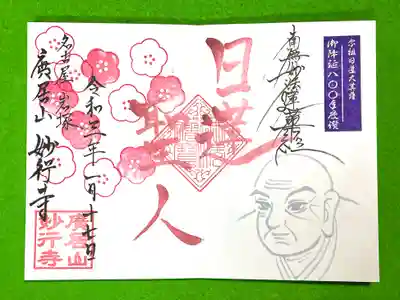 宗祖日蓮大菩薩
御降誕八〇〇年慶讃
南無妙法蓮華経
日蓮聖人
令和三年一月十七日
名古屋
廣居山 妙行寺
廣居山
妙行寺